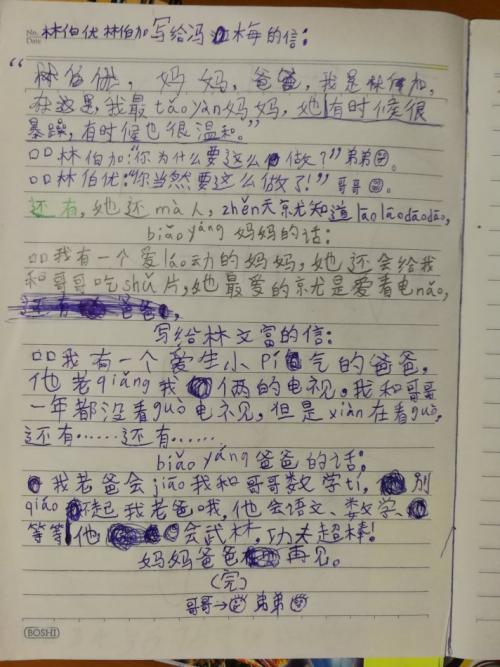 No.
Date
林伯优林伯加写给冯梅的信:
“林伯优,妈妈,爸爸,我是林伯加,
在这是,我最tǎo yàn妈妈,她有时候很
暴躁,有时候也很温和。”
口口林伯加:“你为什么要这么做?”弟弟。
口口林伯优:“你当然要这么做了!”哥哥。
还有,她还mà人,zhěn天就知道láo láo dāo dāo,
biǎo yáng妈妈的话:
口口我有一个爱láo动的妈妈,她还会给我
和哥哥吃shǔ片,她最爱的就是爱看电nǎo,
还有爸爸,
写给林文富的信:
口口我有一个爱生小pí气的爸爸,
他老qiǎng我俩的电视。我和哥哥
一年都没看guò电视,但是xiàn在看guò,
还有……还有……
biǎo yáng爸爸的话:
我老爸会jiāo我和哥哥数学tí,别
qiáo不起我老爸哦,他会语文、数学、
等等他会武林,功夫超棒!
妈妈爸爸再见。
(完)
哥哥→ 弟弟
BOSHI